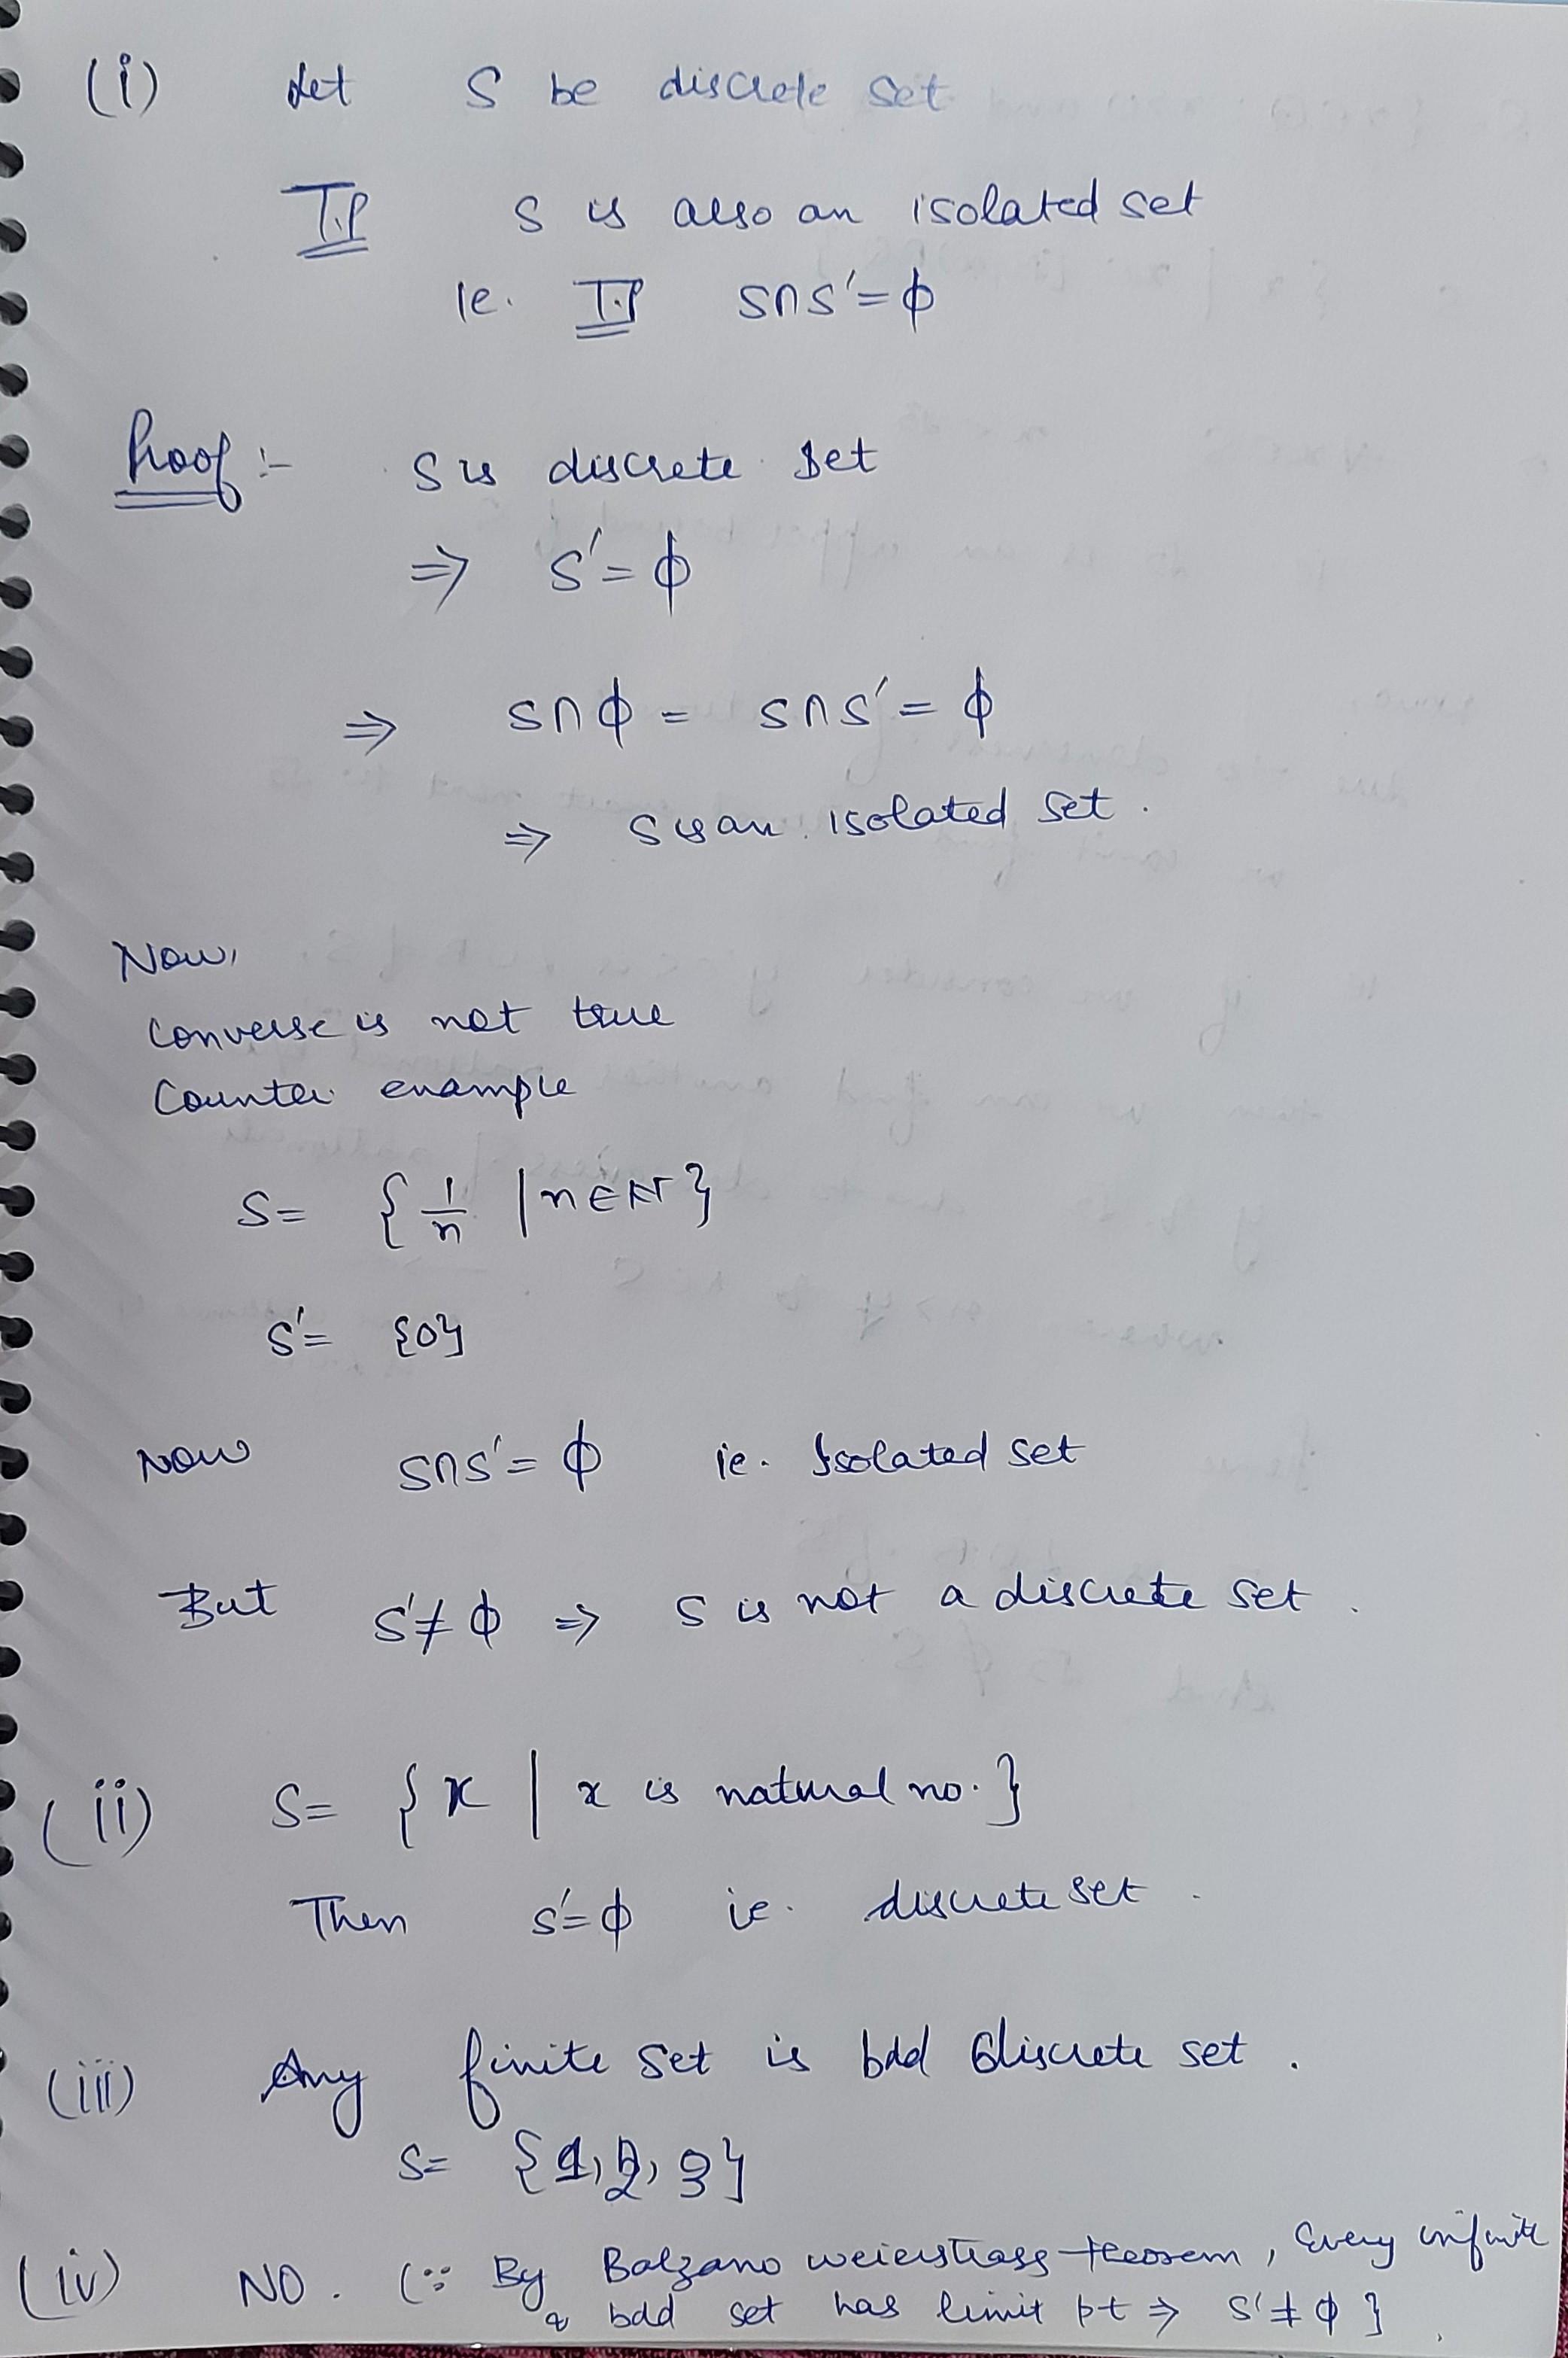 (i) Let S be discrete set
T.P S is also an isolated set
ie. T.P S∩S'=ϕ
Proof :- S is discrete set
⇒ S'=ϕ
⇒ S∩ϕ = S∩S' = ϕ
⇒ S is an isolated set.
Now,
converse is not true
Counter example
S= {1/n | n∈N}
S'= {0}
Now S∩S'=ϕ ie. Isolated set
But S'≠ϕ ⇒ S is not a discrete set.
(ii) S= {x | x is natural no.}
Then S'=ϕ ie. discrete set.
(iii) Any finite set is bdd discrete set.
S= {1,2,3}
(iv) NO. (∵ By Balzano weierstrass theorem, Every infinite
& bdd set has limit pt ⇒ S'≠ϕ }